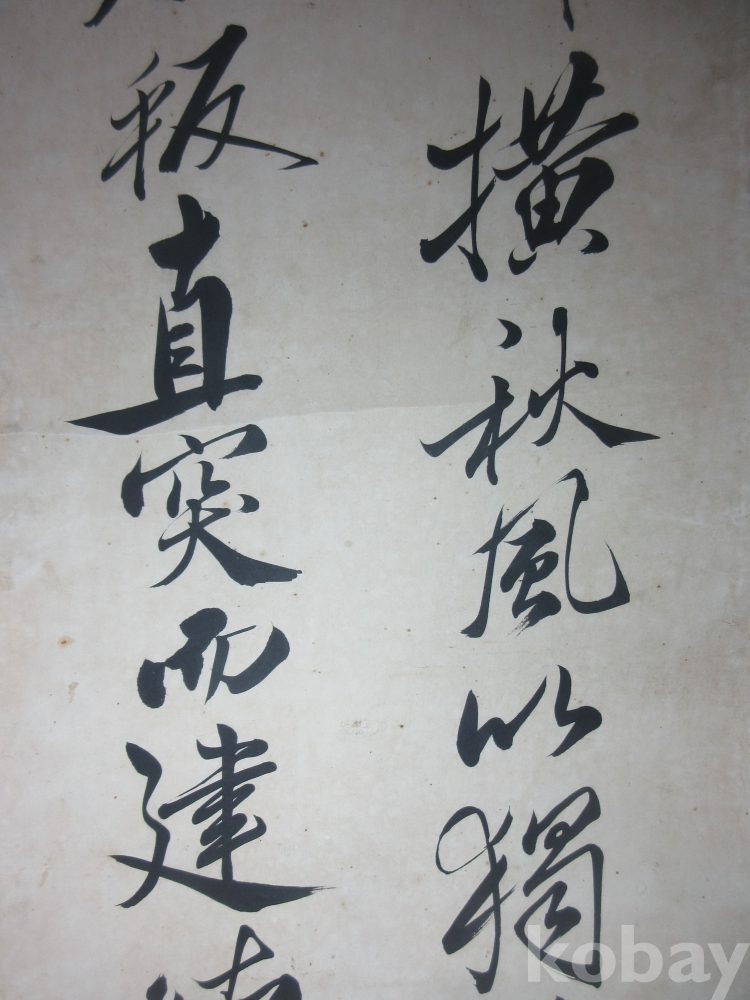 橫秋風以獨
直突而建
kobay